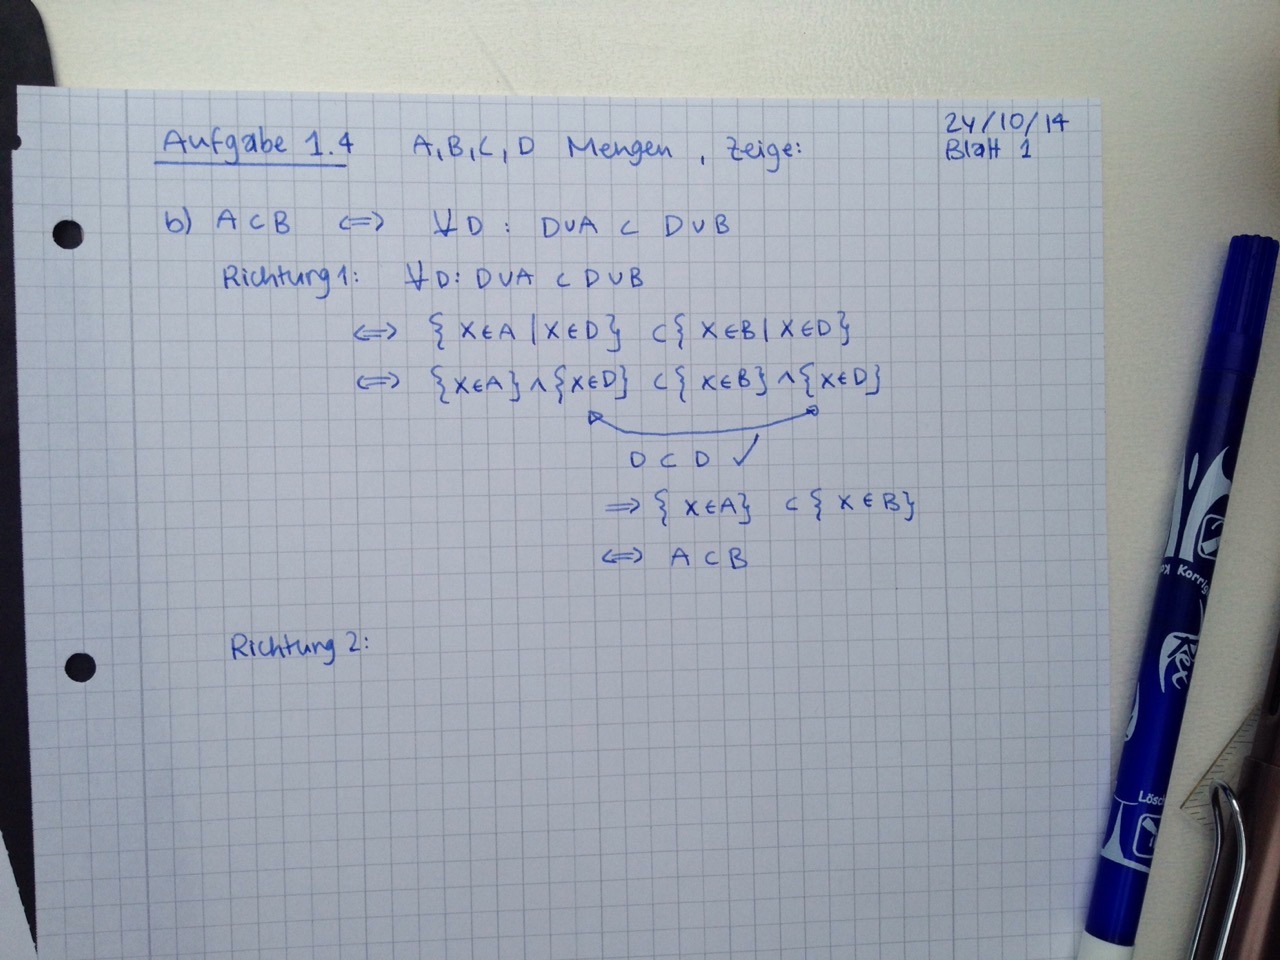 Aufgabe 1.4 A,B,C,D Mengen, Zeige:
24/10/14
Blatt 1
b) A ⊂ B ⟺ ∀D : D∪A ⊂ D∪B
Richtung 1: ∀D: D∪A ⊂ D∪B
⟺ {x∈A | x∈D} ⊂ {x∈B | x∈D}
⟺ {x∈A} ∧ {x∈D} ⊂ {x∈B} ∧ {x∈D}
D ⊂ D ✓
⟹ {x∈A} ⊂ {x∈B}
⟺ A ⊂ B
Richtung 2:
Korrig
Rex
Lösc